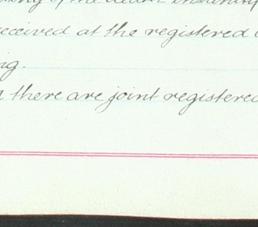 of the death
received at the registered
ng.
there are joint registered